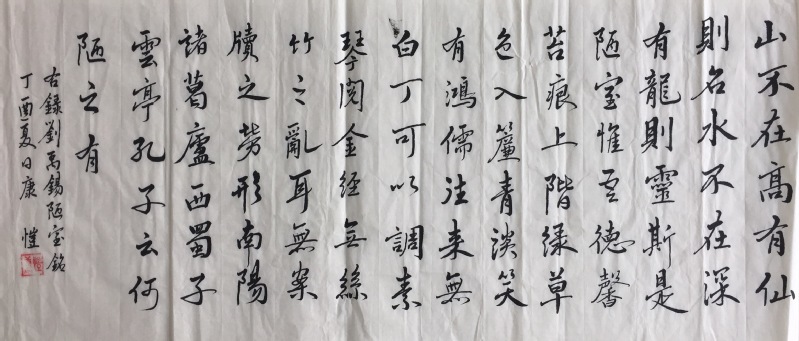 山不在高有仙
則名水不在深
有龍則靈斯是
陋室惟吾德馨
苔痕上階緑草
色入簾青談笑
有鴻儒往来無
白丁可以調素
琴閲金經無絲
竹之亂耳無案
牘之勞形南陽
諸葛廬西蜀子
雲亭孔子云何
陋之有
右録劉禹錫陋室銘
丁酉夏日康愷